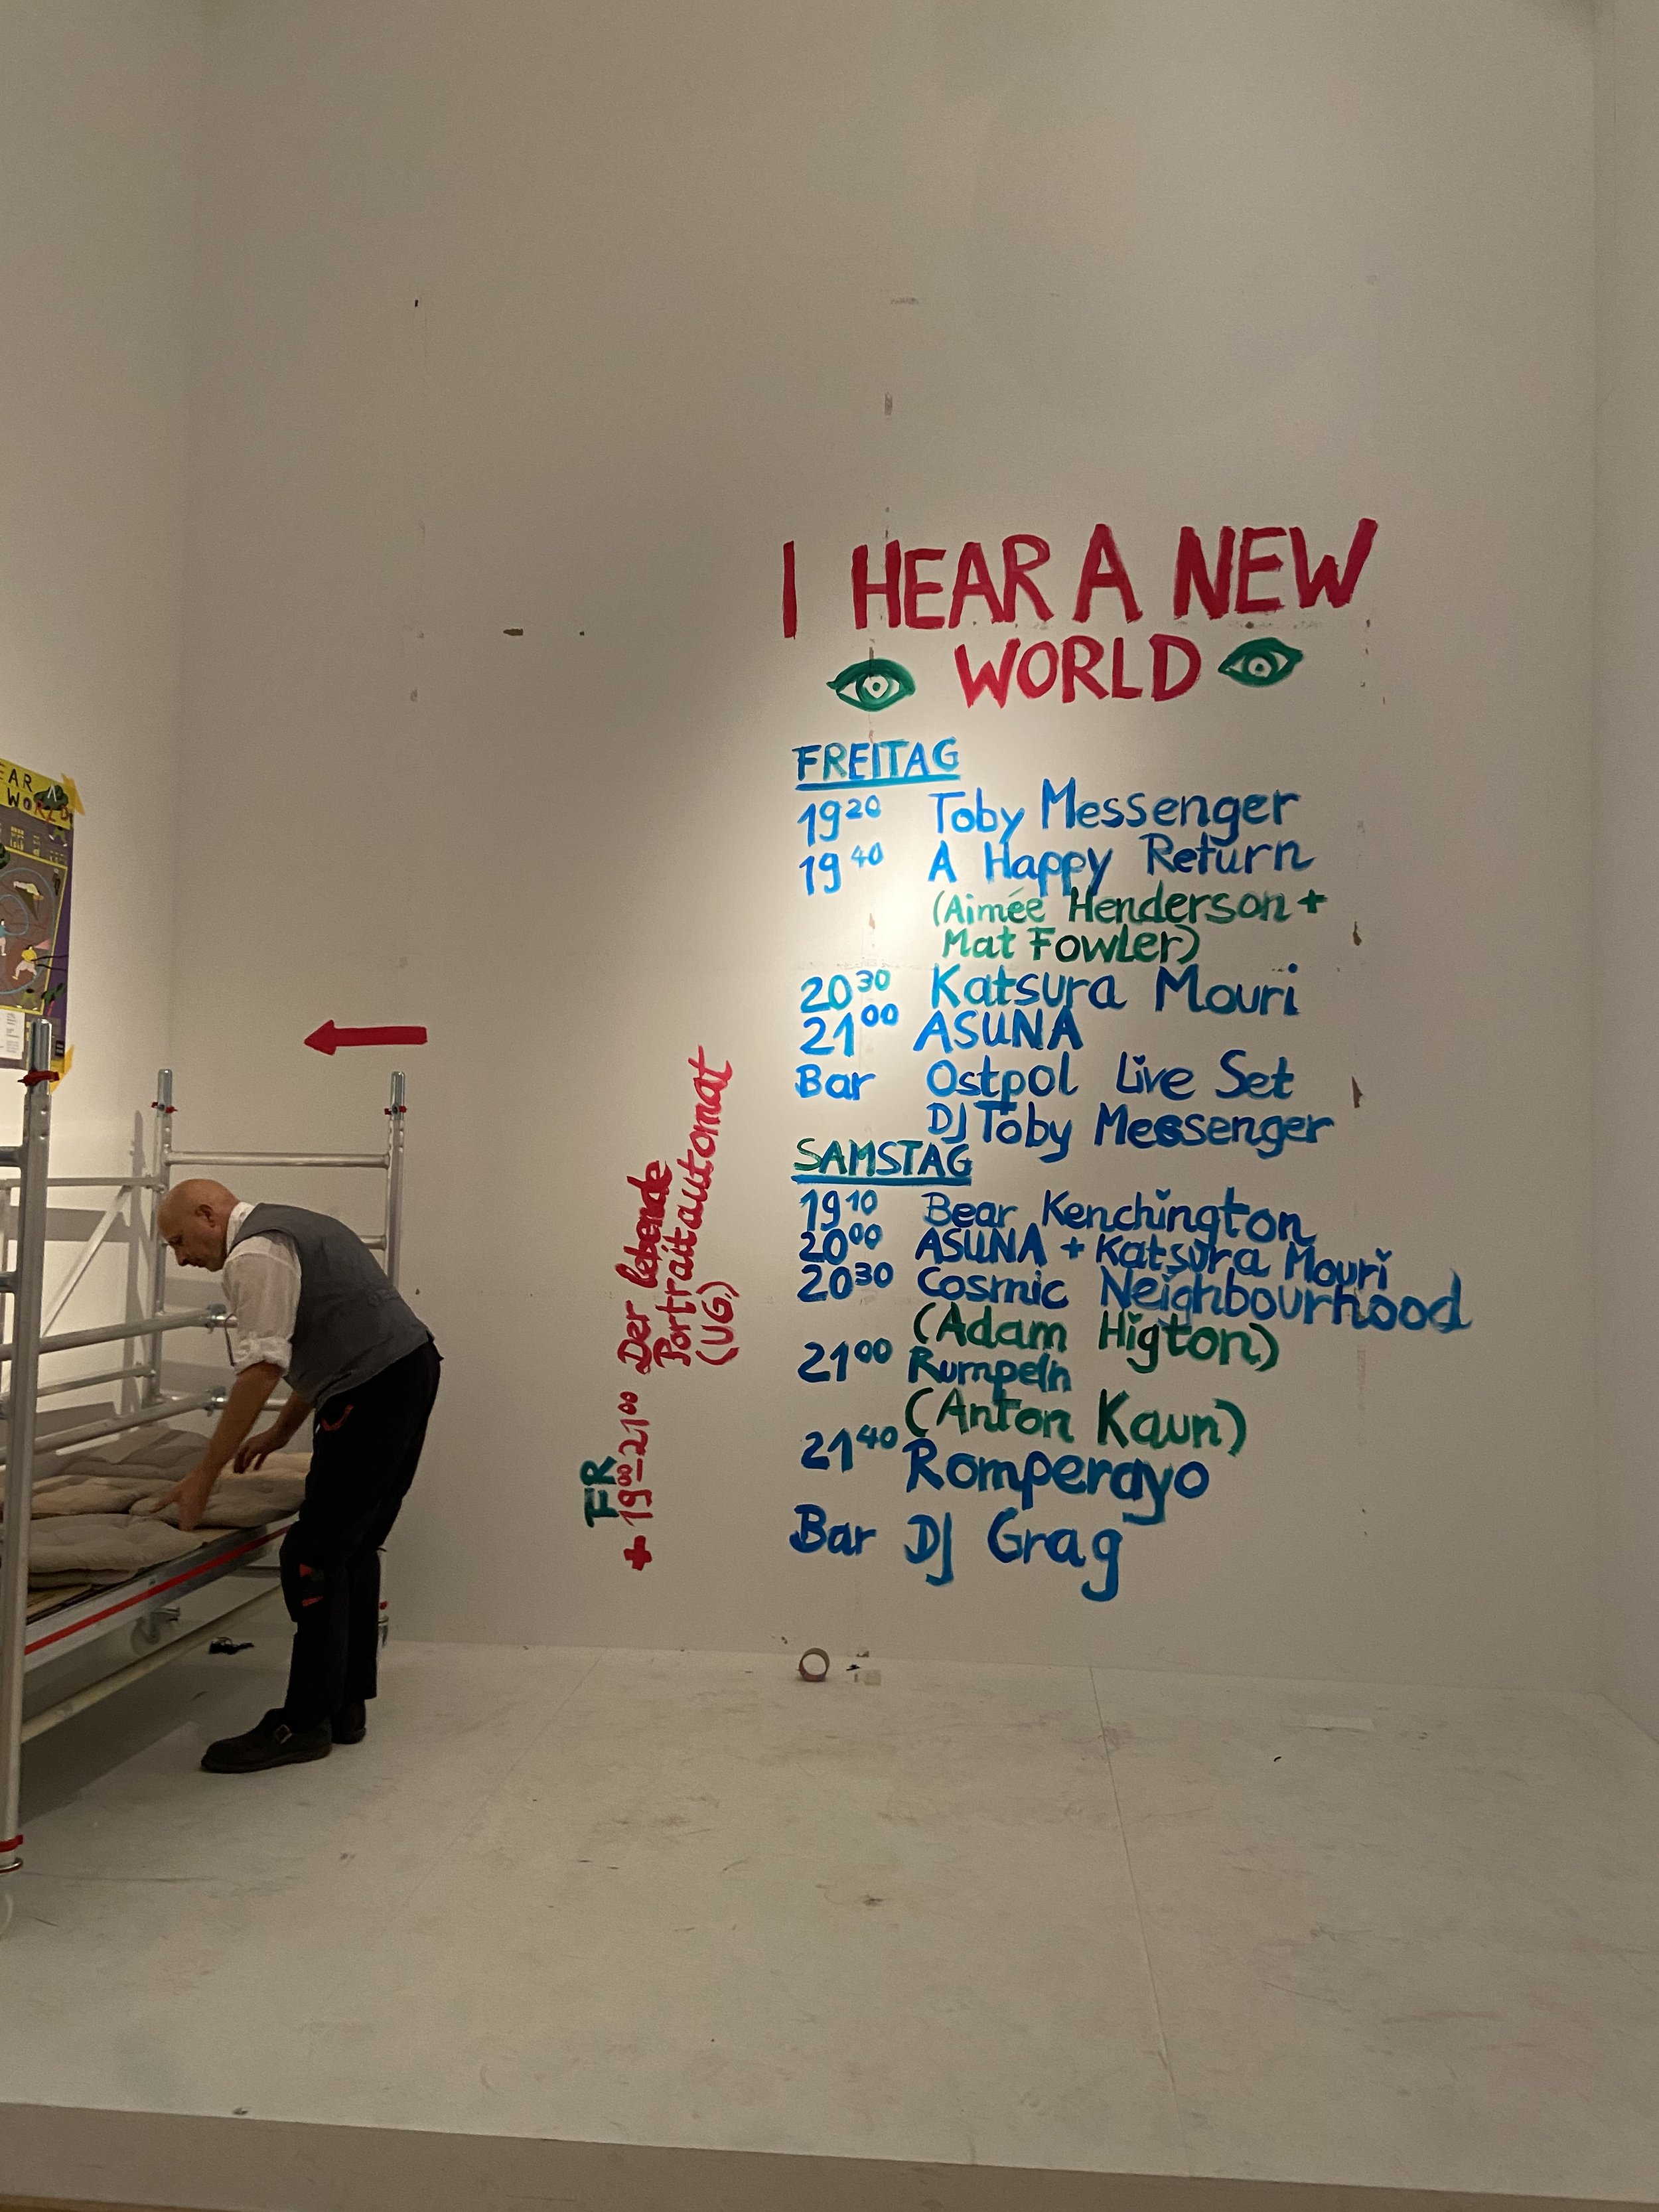 EAR A
WORLD
I HEAR A NEW
WORLD
FREITAG
19 20 Toby Messenger
19 40 A Happy Return
(Aimée Henderson +
Mat Fowler)
20 30 Katsura Mouri
21 00 ASUNA
Bar Ostpol Live Set
DJ Toby Messenger
SAMSTAG
19 10 Bear Kenchington
20 00 ASUNA + Katsura Mouri
20 30 Cosmic Neighbourhood
(Adam Higton)
21 00 Rumpeln
(Anton Kaun)
21 40 Romperayo
Bar DJ Grag
FR
+ 19 00 – 21 00 Der lebende
Portraitautomat
(UG)